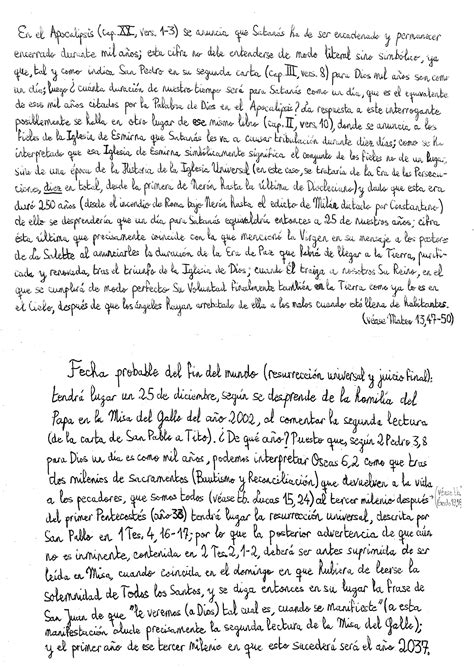 En el Apocalipsis (cap. XX, vers. 1-3) se anuncia que Satanás ha de ser encadenado y permanecer
encerrado durante mil años; esta cifra no debe entenderse de modo literal sino simbólico, ya
que, tal y como indica San Pedro en su segunda carta (cap. III, vers. 8) para Dios mil años son como
un día; luego ¿cuánta duración de nuestro tiempo será para Satanás como un día, que es el equivalente
de esos mil años citados por la Palabra de Dios en el Apocalipsis? La respuesta a este interrogante
posiblemente se halla en otro lugar de ese mismo libro (cap. II, vers. 10), donde se anuncia a los
fieles de la Iglesia de Esmirna que Satanás les va a causar tribulación durante diez días; como se ha
interpretado que esa Iglesia de Esmirna simbólicamente significa el conjunto de los fieles no de un lugar,
sino de una época de la Historia de la Iglesia Universal (en este caso, se trataría de la Era de las Persecu-
ciones, diez en total, desde la primera de Nerón hasta la última de Diocleciano) y dado que esta era
duró 250 años (desde el incendio de Roma bajo Nerón hasta el edicto de Milán dictado por Constantino)
de ello se desprendería que un día para Satanás equivaldría entonces a 25 de nuestros años; cifra
ésta última que precisamente coincide con la que mencionó la Virgen en su mensaje a los pastores
de La Salette al anunciarles la duración de la Era de Paz que habrá de llegar a la Tierra, purifi-
cada y renovada, tras el triunfo de la Iglesia de Dios; cuando Él traiga a nosotros Su Reino, en el
que se cumplirá de modo perfecto Su Voluntad finalmente también en la Tierra como ya lo es en
el Cielo, después de que los ángeles hayan arrebatado de ella a los malos cuando esté llena de habitantes.
(véase Mateo 13,47-50)
Fecha probable del fin del mundo (resurrección universal y juicio final):
tendrá lugar un 25 de diciembre, según se desprende de la homilía del
Papa en la Misa del Gallo del año 2002, al comentar la segunda lectura
(de la carta de San Pablo a Tito). ¿De qué año? Puesto que, según 2 Pedro 3,8
para Dios un día es como mil años, podemos interpretar Oseas 6,2 como que tras
dos milenios de Sacramentos (Bautismo y Reconciliación) que devuelven a la vida
a los pecadores, que somos todos (véase tb. Lucas 15,24) al tercer milenio después
del primer Pentecostés (año 33) tendrá lugar la resurrección universal, descrita por
San Pablo en 1 Tes, 4, 16-17; por lo que la posterior advertencia de que aún
no es inminente, contenida en 2 Tes 2,1-2, deberá ser antes suprimida de ser
leída en Misa, cuando coincida en el domingo en que hubiera de leerse la
solemnidad de Todos los Santos, y se diga entonces en su lugar la frase de
San Juan de que "le veremos (a Dios) tal cual es, cuando se manifieste" (a esta
manifestación alude precisamente la segunda lectura de la Misa del Gallo);
y el primer año de ese tercer milenio en que esto sucederá será el año 2037.